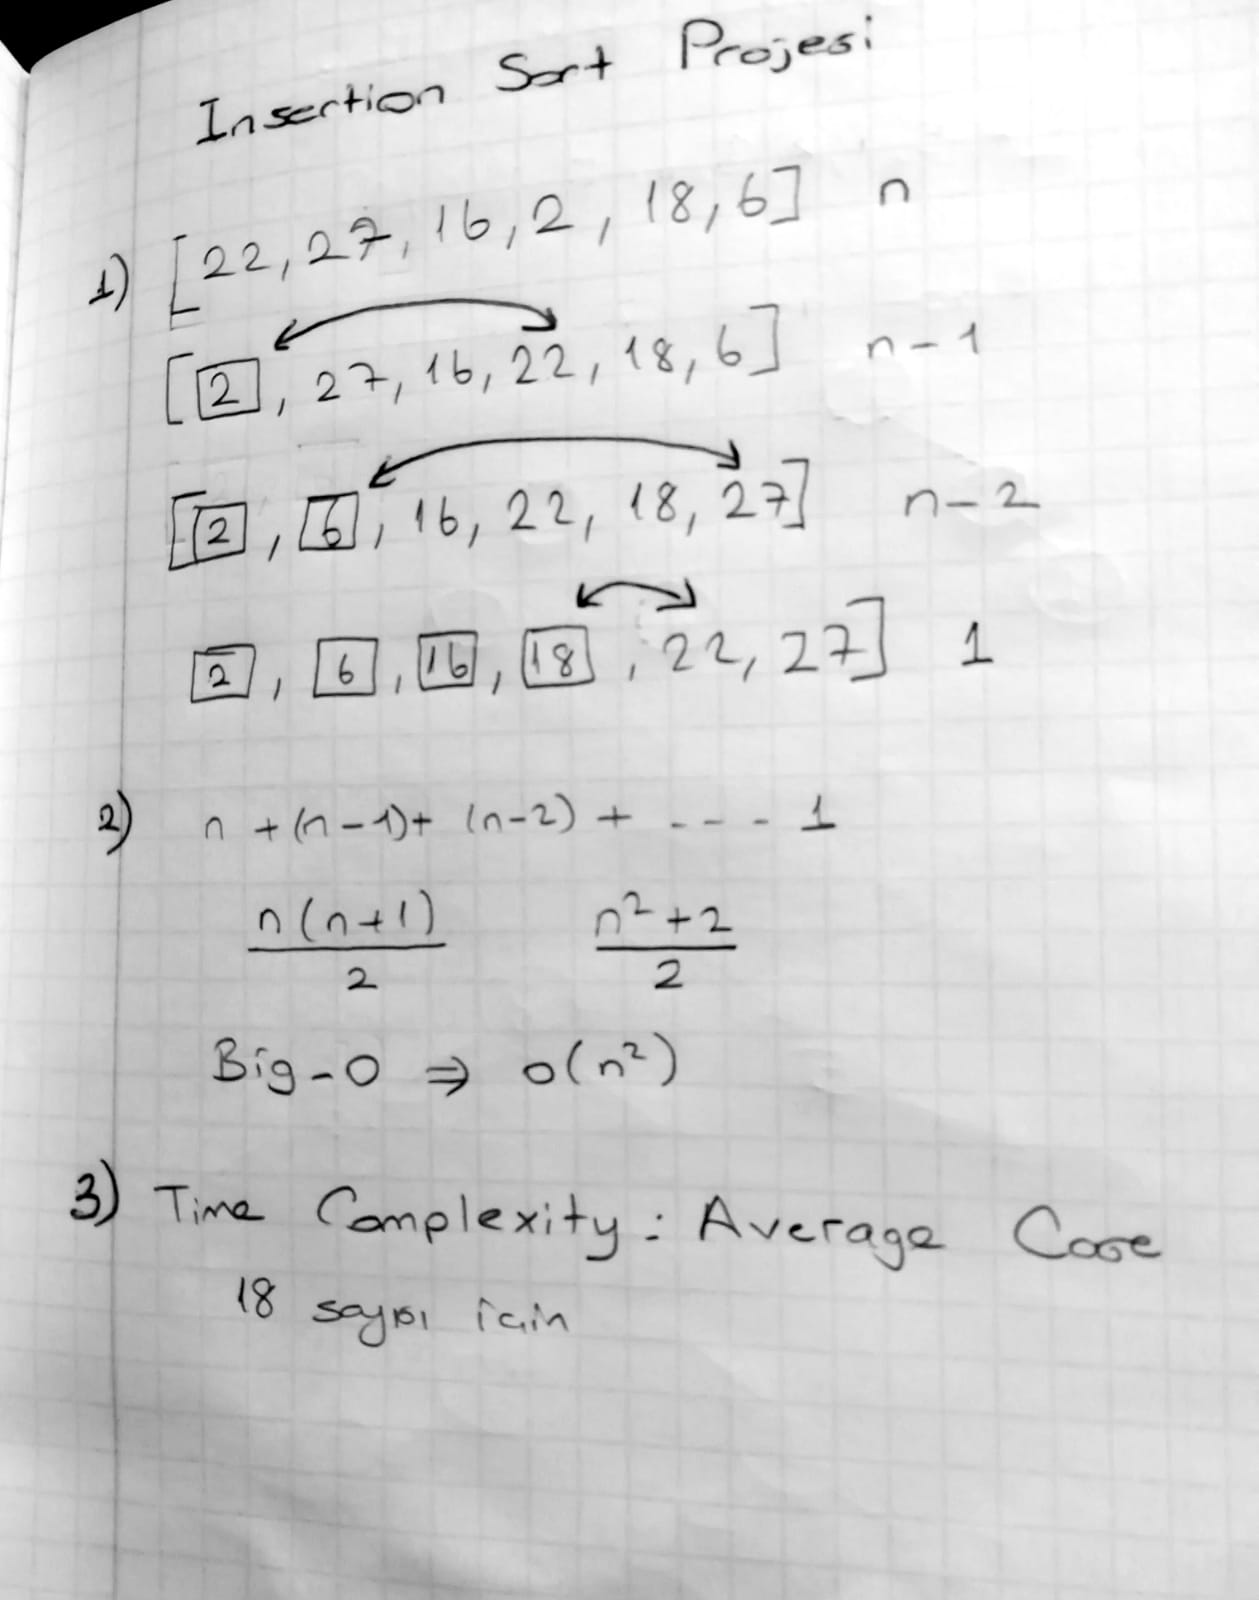 Insertion Sort Projesi
1) [22, 27, 16, 2, 18, 6] n
[2, 27, 16, 22, 18, 6] n-1
[2, 6, 16, 22, 18, 27] n-2
2, 6, 16, 18, 22, 27] 1
2) n + (n-1)+ (n-2) + ---- 1
n(n+1)/2 n²+2/2
Big-O ⇒ o(n²)
3) Time Complexity: Average Case
18 sayısı için